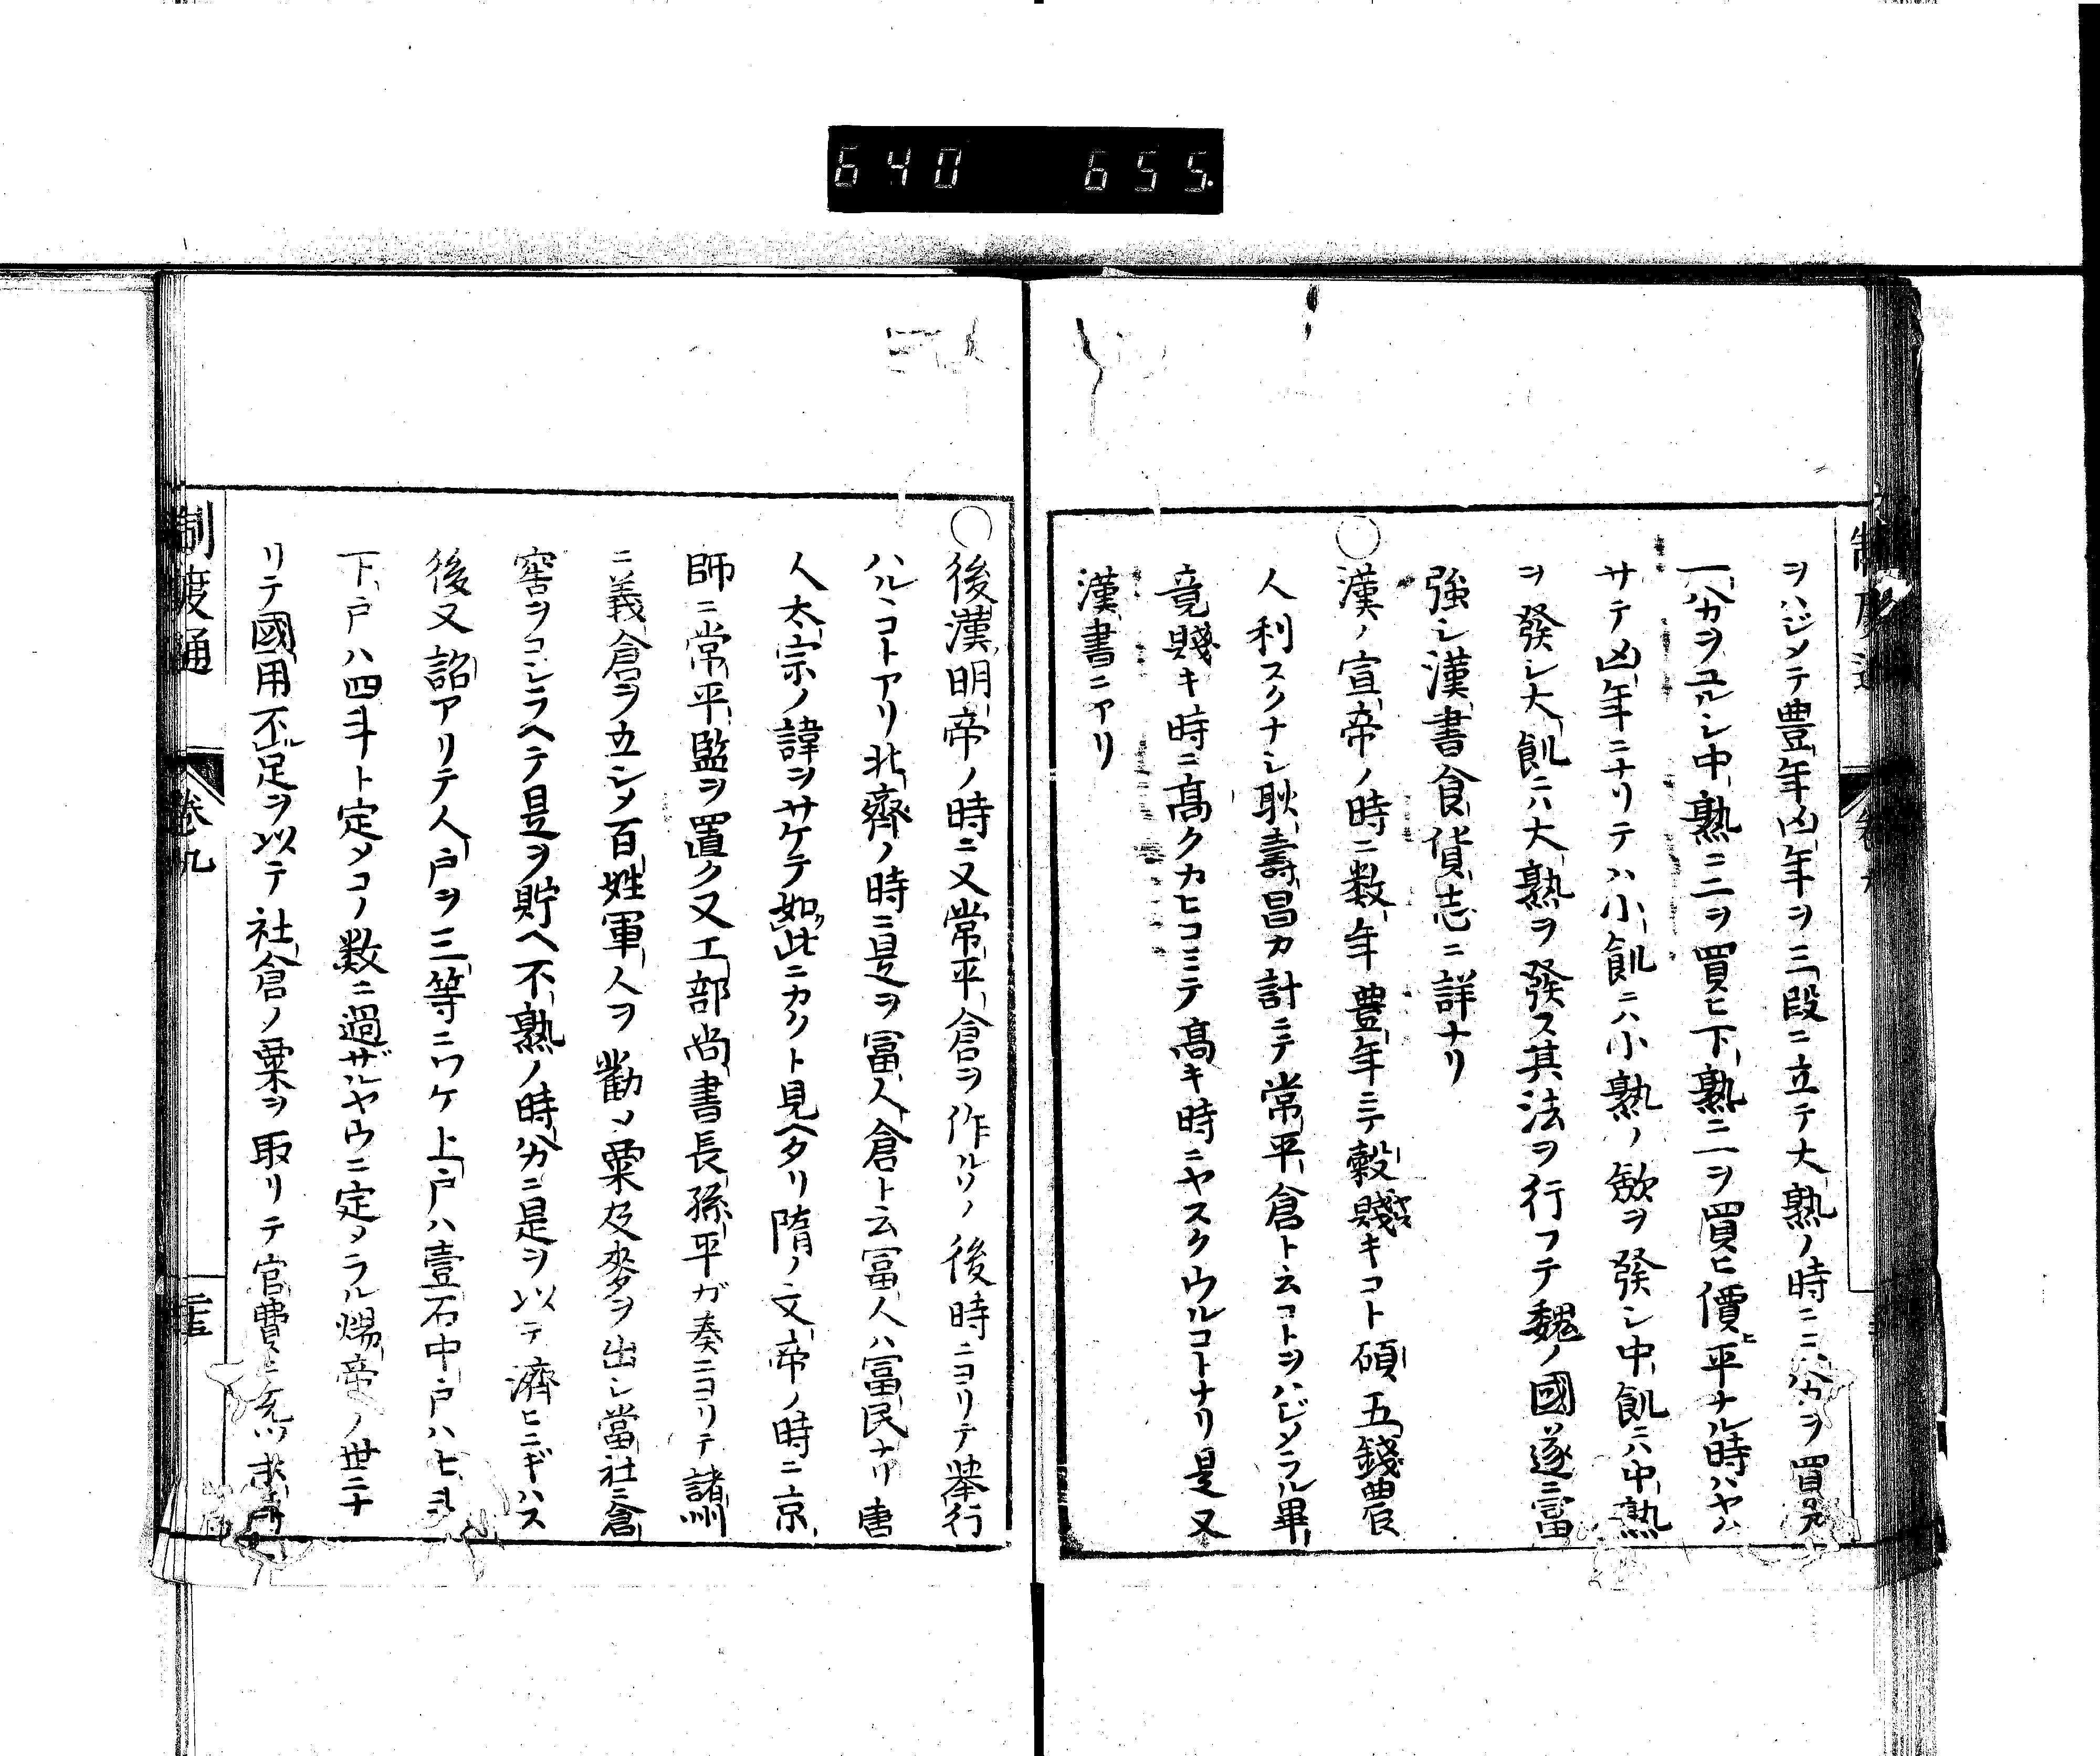 640 655.
ヲハジメテ豊年凶年ヲ三段ニ立テ大熟ノ時ニ三分ヲ買
一分ヲユルシ中熟ニ二ヲ買ヒ下熟ニ一ヲ買ヒ價平ナル時ハヤム
サテ凶年ニナリテハ小飢ニハ小熟ノ歛ヲ發シ中飢ニハ中熟
ヲ發シ大飢ニハ大熟ヲ發ス其法ヲ行フテ魏ノ國遂ニ富
強シ漢書食貨志ニ詳ナリ
○漢ノ宣帝ノ時ニ数年豊年ニテ穀賤キコト碩五錢農
人利スクナシ耿壽昌カ計ニテ常平倉ト云コトヲハジメラル畢
竟賤キ時ニ髙クカヒコミテ髙キ時ニヤスクウルコトナリ是又
漢書ニアリ
○後漢明帝ノ時ニ又常平倉ヲ作ルソノ後時ニヨリテ舉行
ハルヽコトアリ北齊ノ時ニ是ヲ富人倉ト云富人ハ富民ナリ唐
人太宗ノ諱ヲサケテ如此ニカクト見ヘタリ隋ノ文帝ノ時ニ京
師ニ常平監ヲ置ク又工部尚書長孫平ガ奏ニヨリテ諸州
ニ義倉ヲ立シメ百姓軍人ヲ勸メ粟及麥ヲ出シ當社ニ倉
窖ヲコシラヘテ是ヲ貯ヘ不熟ノ時分ニ是ヲ以テ濟ヒニギハス
後又詔アリテ人戸ヲ三等ニワケ上戸ハ壹石中戸ハ七斗
下戸ハ四斗ト定メコノ数ニ過ザルヤウニ定メラル煬帝ノ世ニ
リテ國用不足ヲ以テ社倉ノ粟ヲ取リテ官費ニ充
制度通 卷九